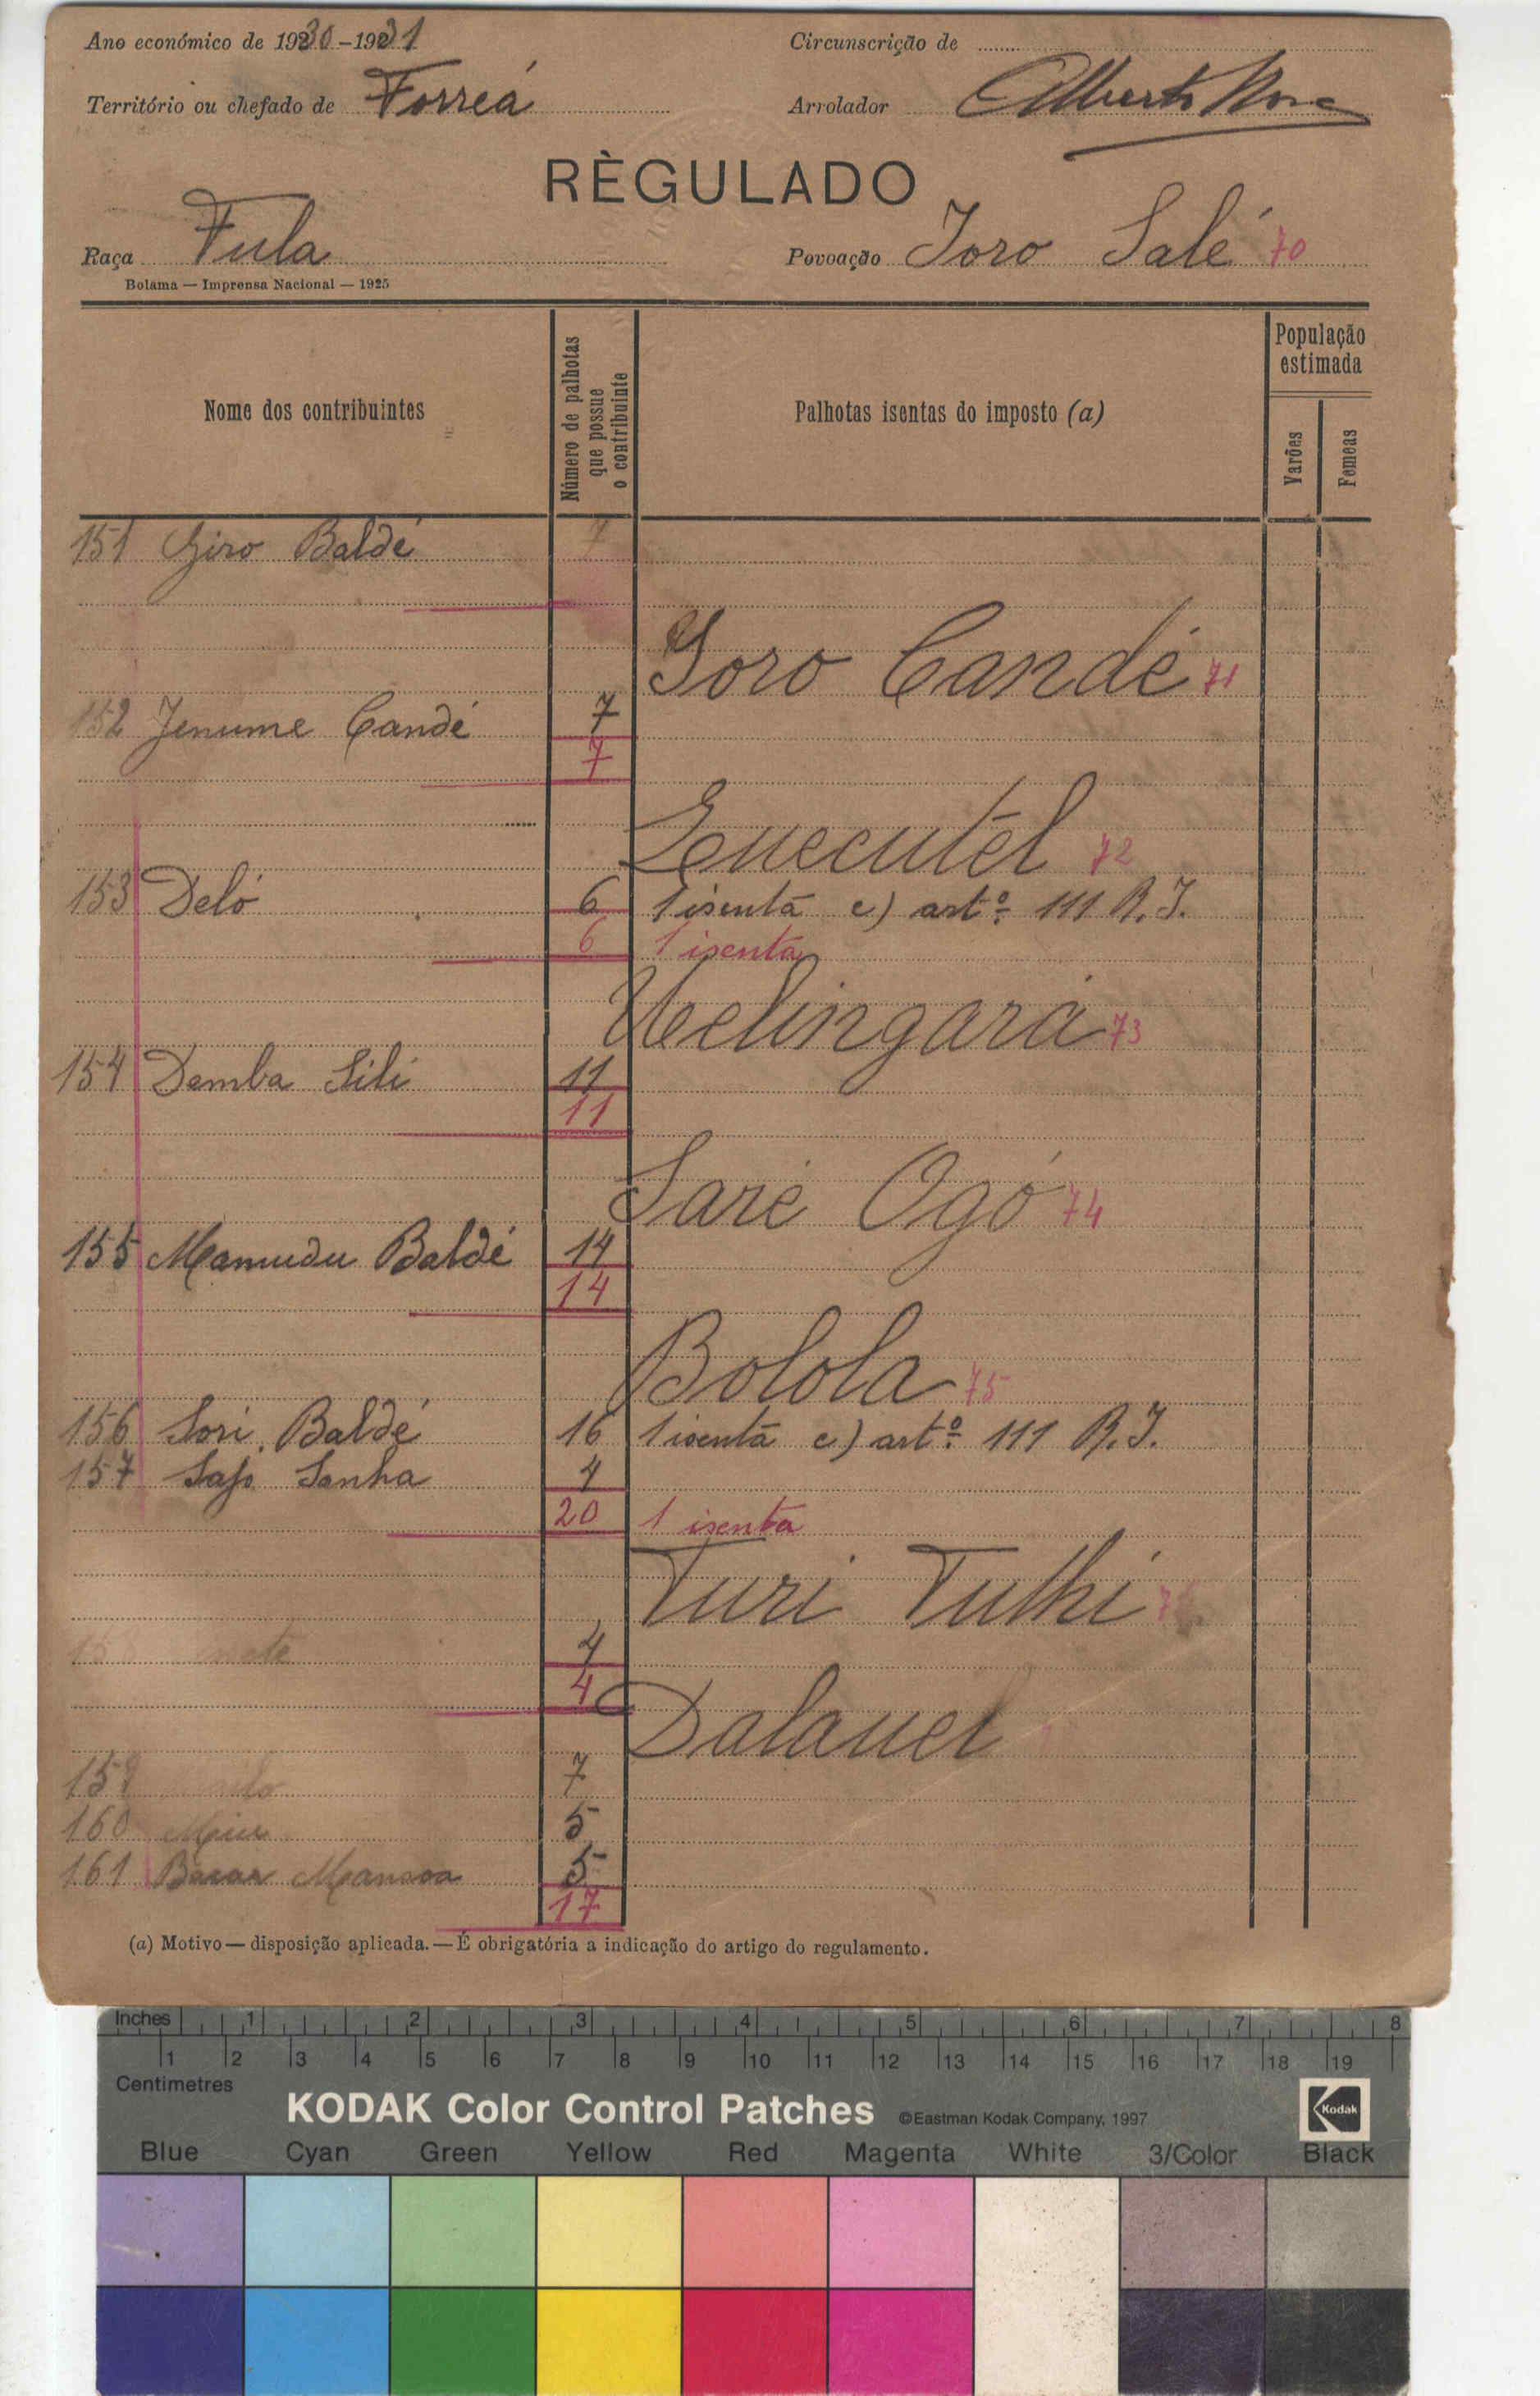 Ano económico de 1930-1931
Circunscrição de
Território ou chefado de Forreá
Arrolador Alberto
RÈGULADO
Raça Fula
Povoação Joro Salé 70
Bolama — Imprensa Nacional — 1925
Nome dos contribuintes
Número de palhotas que possue o contribuinte
Palhotas isentas do imposto (a)
População estimada
Varões
Femeas
151 Giro Baldé
Goro Candé 71
152 Jenume Candé 7
7
72
153 Deló 6 1 isenta c) artº 111 R.I.
6 1 isenta
Uelingará 73
154 Demba Sili 11
11
Saré Ogó 74
155 Mamudu Baldé 14
14
Bolola 75
156 Sori Baldé 16 1 isenta c) artº 111 R.I.
157 Sanha 4
20 1 isenta
Turi Tuthi
4
4
Dalauel
7
160 5
161 Bacar Mansoa 5
17
(a) Motivo — disposição aplicada. — É obrigatória a indicação do artigo do regulamento.
Inches 1 2 3 4 5 6 7 8
1 2 3 4 5 6 7 8 9 10 11 12 13 14 15 16 17 18 19
Centimetres
KODAK Color Control Patches ©Eastman Kodak Company, 1997 Kodak
Blue Cyan Green Yellow Red Magenta White 3/Color Black